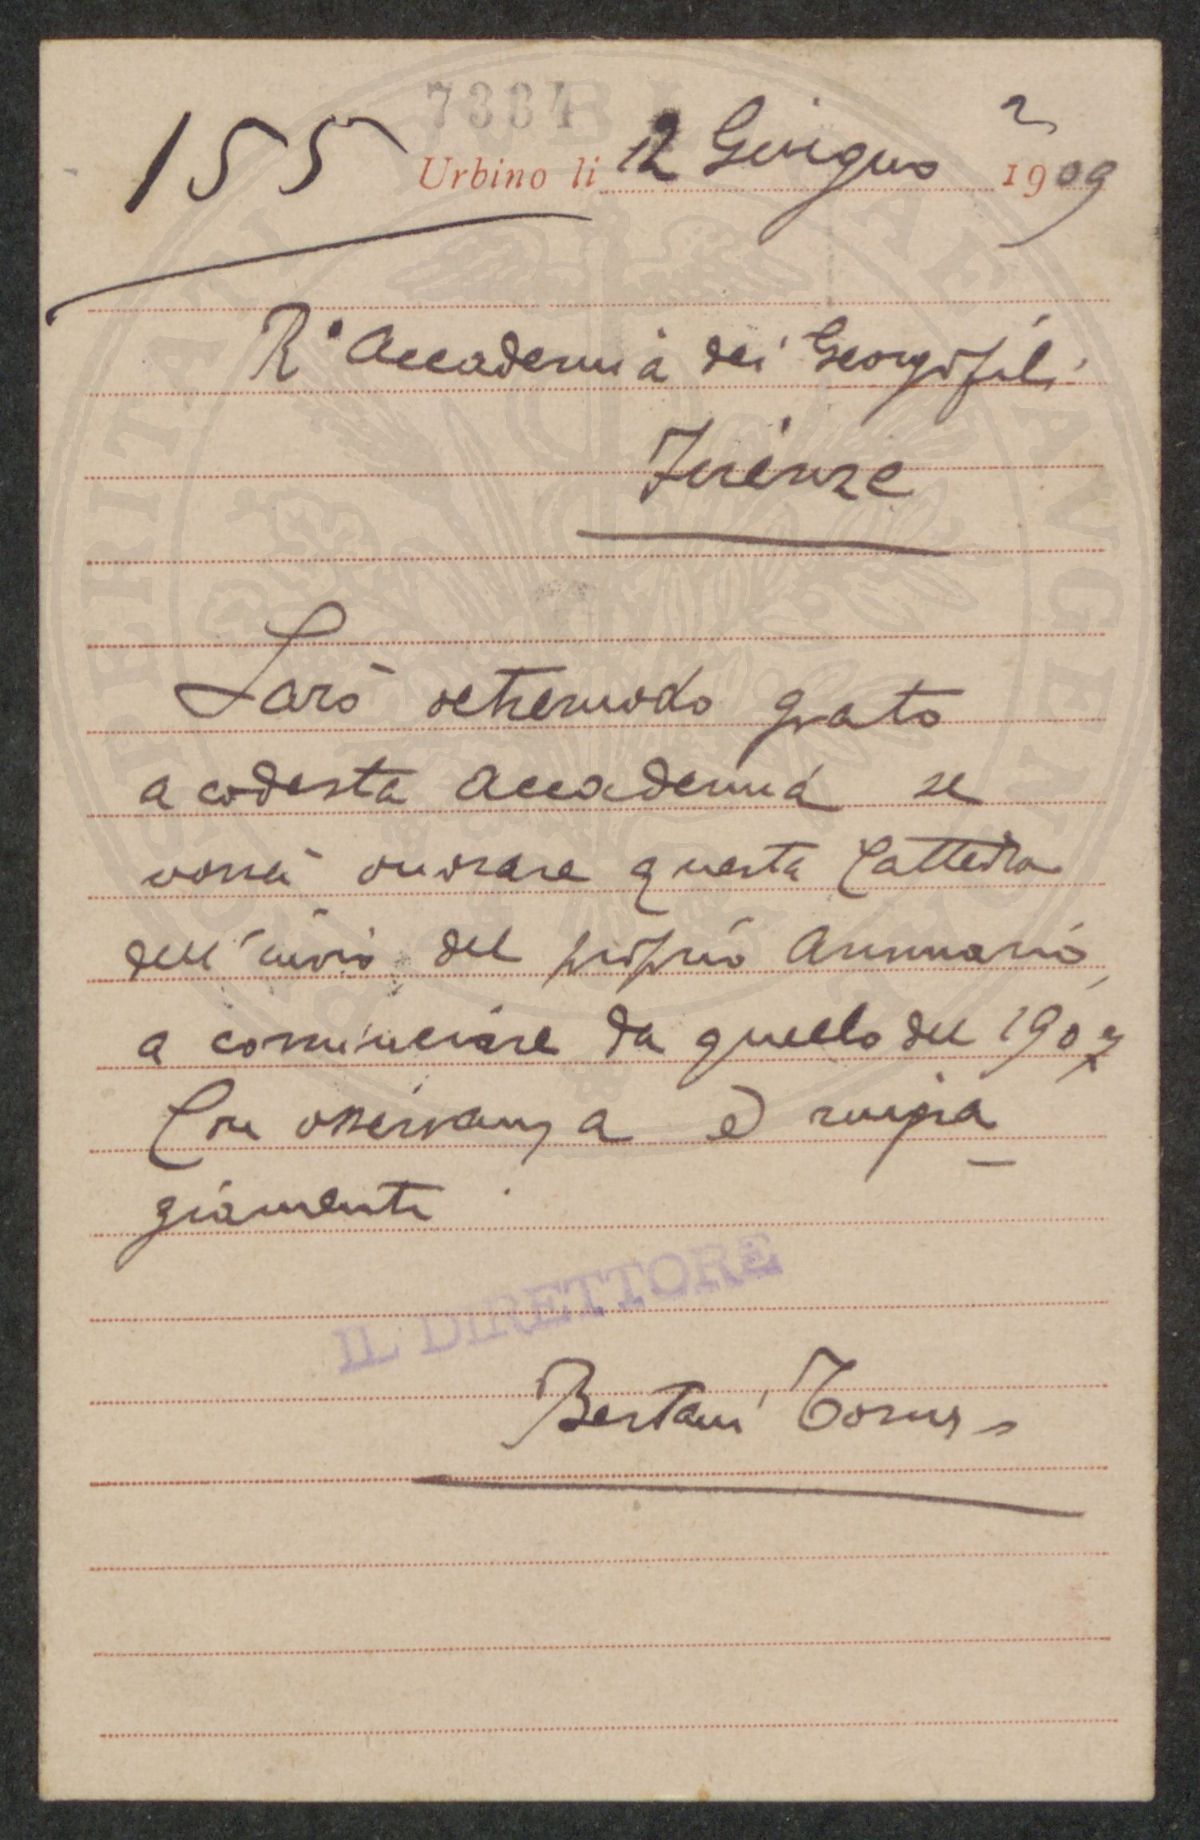 7334
155 Urbino li 12 Giugno 1909
R.a Accademia dei Georgofili
Firenze
Sarò oltremodo grato
a codesta Accademia se
vorrà onorare questa Cattedra
dell'invio del proprio Annuario,
a cominciare da quello del 1907
Con osservanza e ringra
ziamenti
IL DIRETTORE
Bertani
PROSPERITATI PUBLICAE AUGENDAE